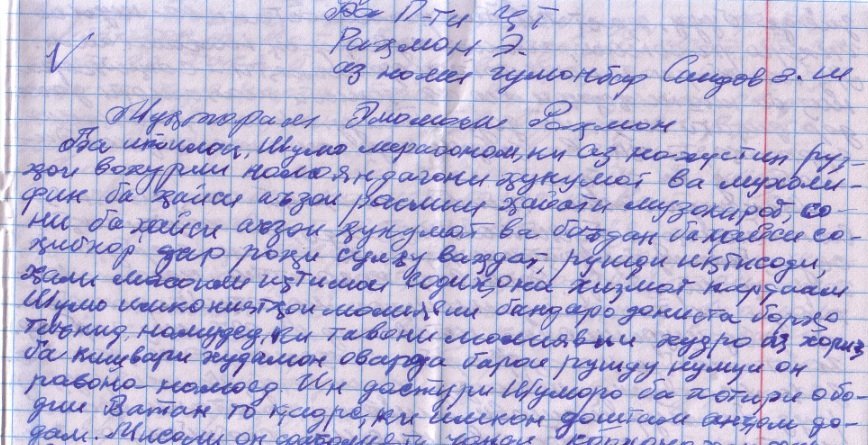 Ба П-ти ҶТ
Раҳмон Э.
аз номи гумонбар Саидов З. Ш
Муҳтарам Эмомали Раҳмон
Ба иттилои Шумо мерасонам, ки аз нахустин рӯз-
ҳои вохӯрии намояндагони ҳукумат ва мухоли-
фин ба ҳайси аъзои расмии ҳайати музокирот, со-
ни ба ҳайси аъзои ҳукумат ва баъдан ба ҳайси со-
ҳибкор дар роҳи сулҳу ваҳдат, рушди иқтисоди,
ҳали масоили иҷтимои содиқона хизмат кардаам
Шумо имкониятҳои молиявии бандаро дониста борҳо
таъкид намудед, ки тавони молиявии худро аз хориҷ
ба кишвари худамон оварда барои рушду нумуи он
равона намоед Ин дастури Шуморо ба хотири обо-
дии Ватан то қадре, ки имкон доштам анҷом до-
дам. Мисоли он